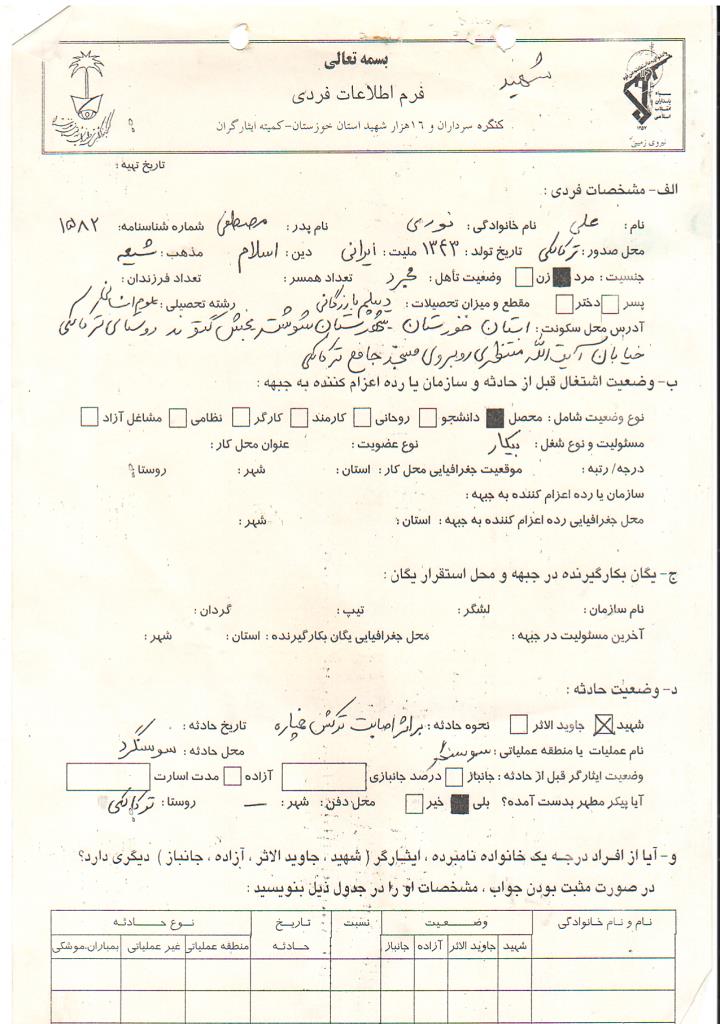 بسمه تعالی
شهید
فرم اطلاعات فردی
کنگره سرداران و ۱۶هزار شهید استان خوزستان-کمیته ایثارگران
سپاه پاسداران انقلاب اسلامی
۱۳۵۷
نیروی زمینی
تاریخ تهیه :
الف- مشخصات فردی :
نام : علی نام خانوادگی : نوری نام پدر : مصطفی شماره شناسنامه: ۱۵۸۲
محل صدور: ترکالکی تاریخ تولد : ۱۳۴۳ ملیت : ایرانی دین : اسلام مذهب: شیعه
جنسیت : مرد زن وضعیت تأهل : مجرد تعداد همسر : تعداد فرزندان :
پسر دختر مقطع و میزان تحصیلات : دیپلم بازرگانی رشته تحصیلی : علوم انسانی
آدرس محل سکونت: استان خوزستان شهرستان شوشتر بخش گتوند روستای ترکالکی
خیابان آیت الله منتظری روبروی مسجد جامع ترکالکی
ب- وضعیت اشتغال قبل از حادثه و سازمان یا رده اعزام کننده به جبهه :
نوع وضعیت شامل : محصل دانشجو روحانی کارمند کارگر نظامی مشاغل آزاد
مسئولیت و نوع شغل : بیکار نوع عضویت : عنوان محل کار :
درجه/ رتبه : موقعیت جغرافیایی محل کار : استان : شهر : روستا
سازمان یا رده اعزام کننده به جبهه :
محل جغرافیایی رده اعزام کننده به جبهه : استان : شهر :
ج- یگان بکارگیرنده در جبهه و محل استقرار یگان :
نام سازمان : لشگر : تیپ : گردان :
آخرین مسئولیت در جبهه : محل جغرافیایی یگان بکارگیرنده : استان : شهر :
د- وضعیت حادثه :
شهید جاوید الاثر نحوه حادثه : براثر اصابت ترکش خمپاره تاریخ حادثه :
نام عملیات یا منطقه عملیاتی : سوسنگرد محل حادثه : سوسنگرد
وضعیت ایثارگر قبل از حادثه : جانباز درصد جانبازی آزاده مدت اسارت
آیا پیکر مطهر بدست آمده؟ بلی خیر محل دفن: شهر : — روستا : ترکالکی
و- آیا از افراد درجه یک خانواده نامبرده ، ایثارگر ( شهید ، جاوید الاثر ، آزاده ، جانباز ) دیگری دارد؟
در صورت مثبت بودن جواب ، مشخصات او را در جدول ذیل بنویسید :
نام و نام خانوادگی وضعیت نسبت تاریخ حادثه نوع حادثه
شهید جاوید الاثر آزاده جانباز منطقه عملیاتی غیر عملیاتی بمباران،موشکی